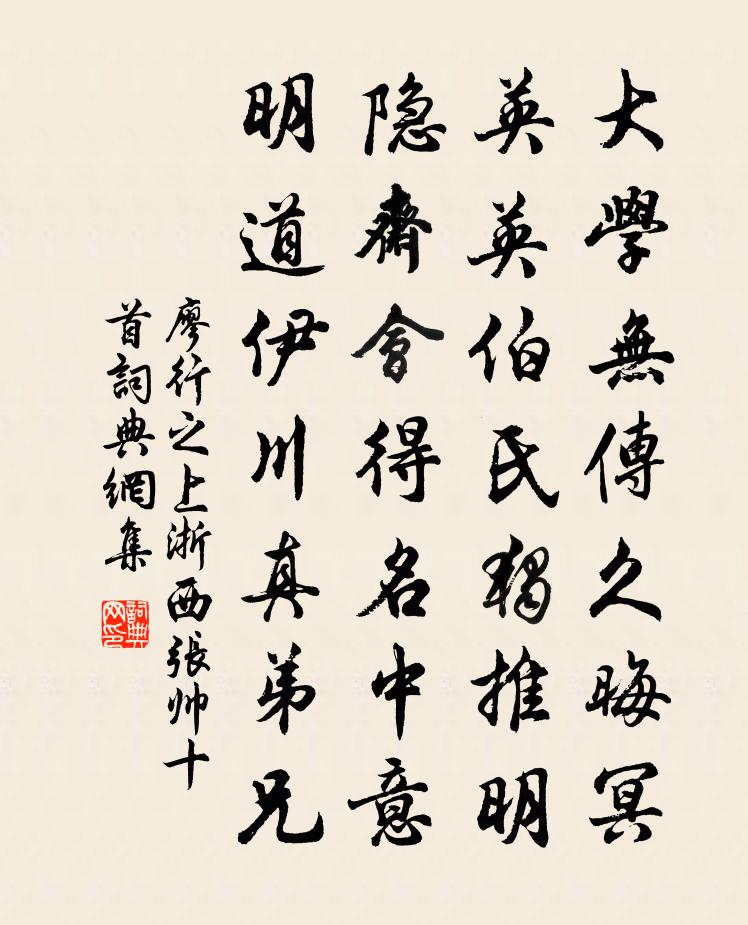 大學無傳久晦冥
英英伯氏獨推明
隐齋會得名中意
明道伊川真弟兄
廖行之上浙西張帅十
首詞典網集
詞典
网印